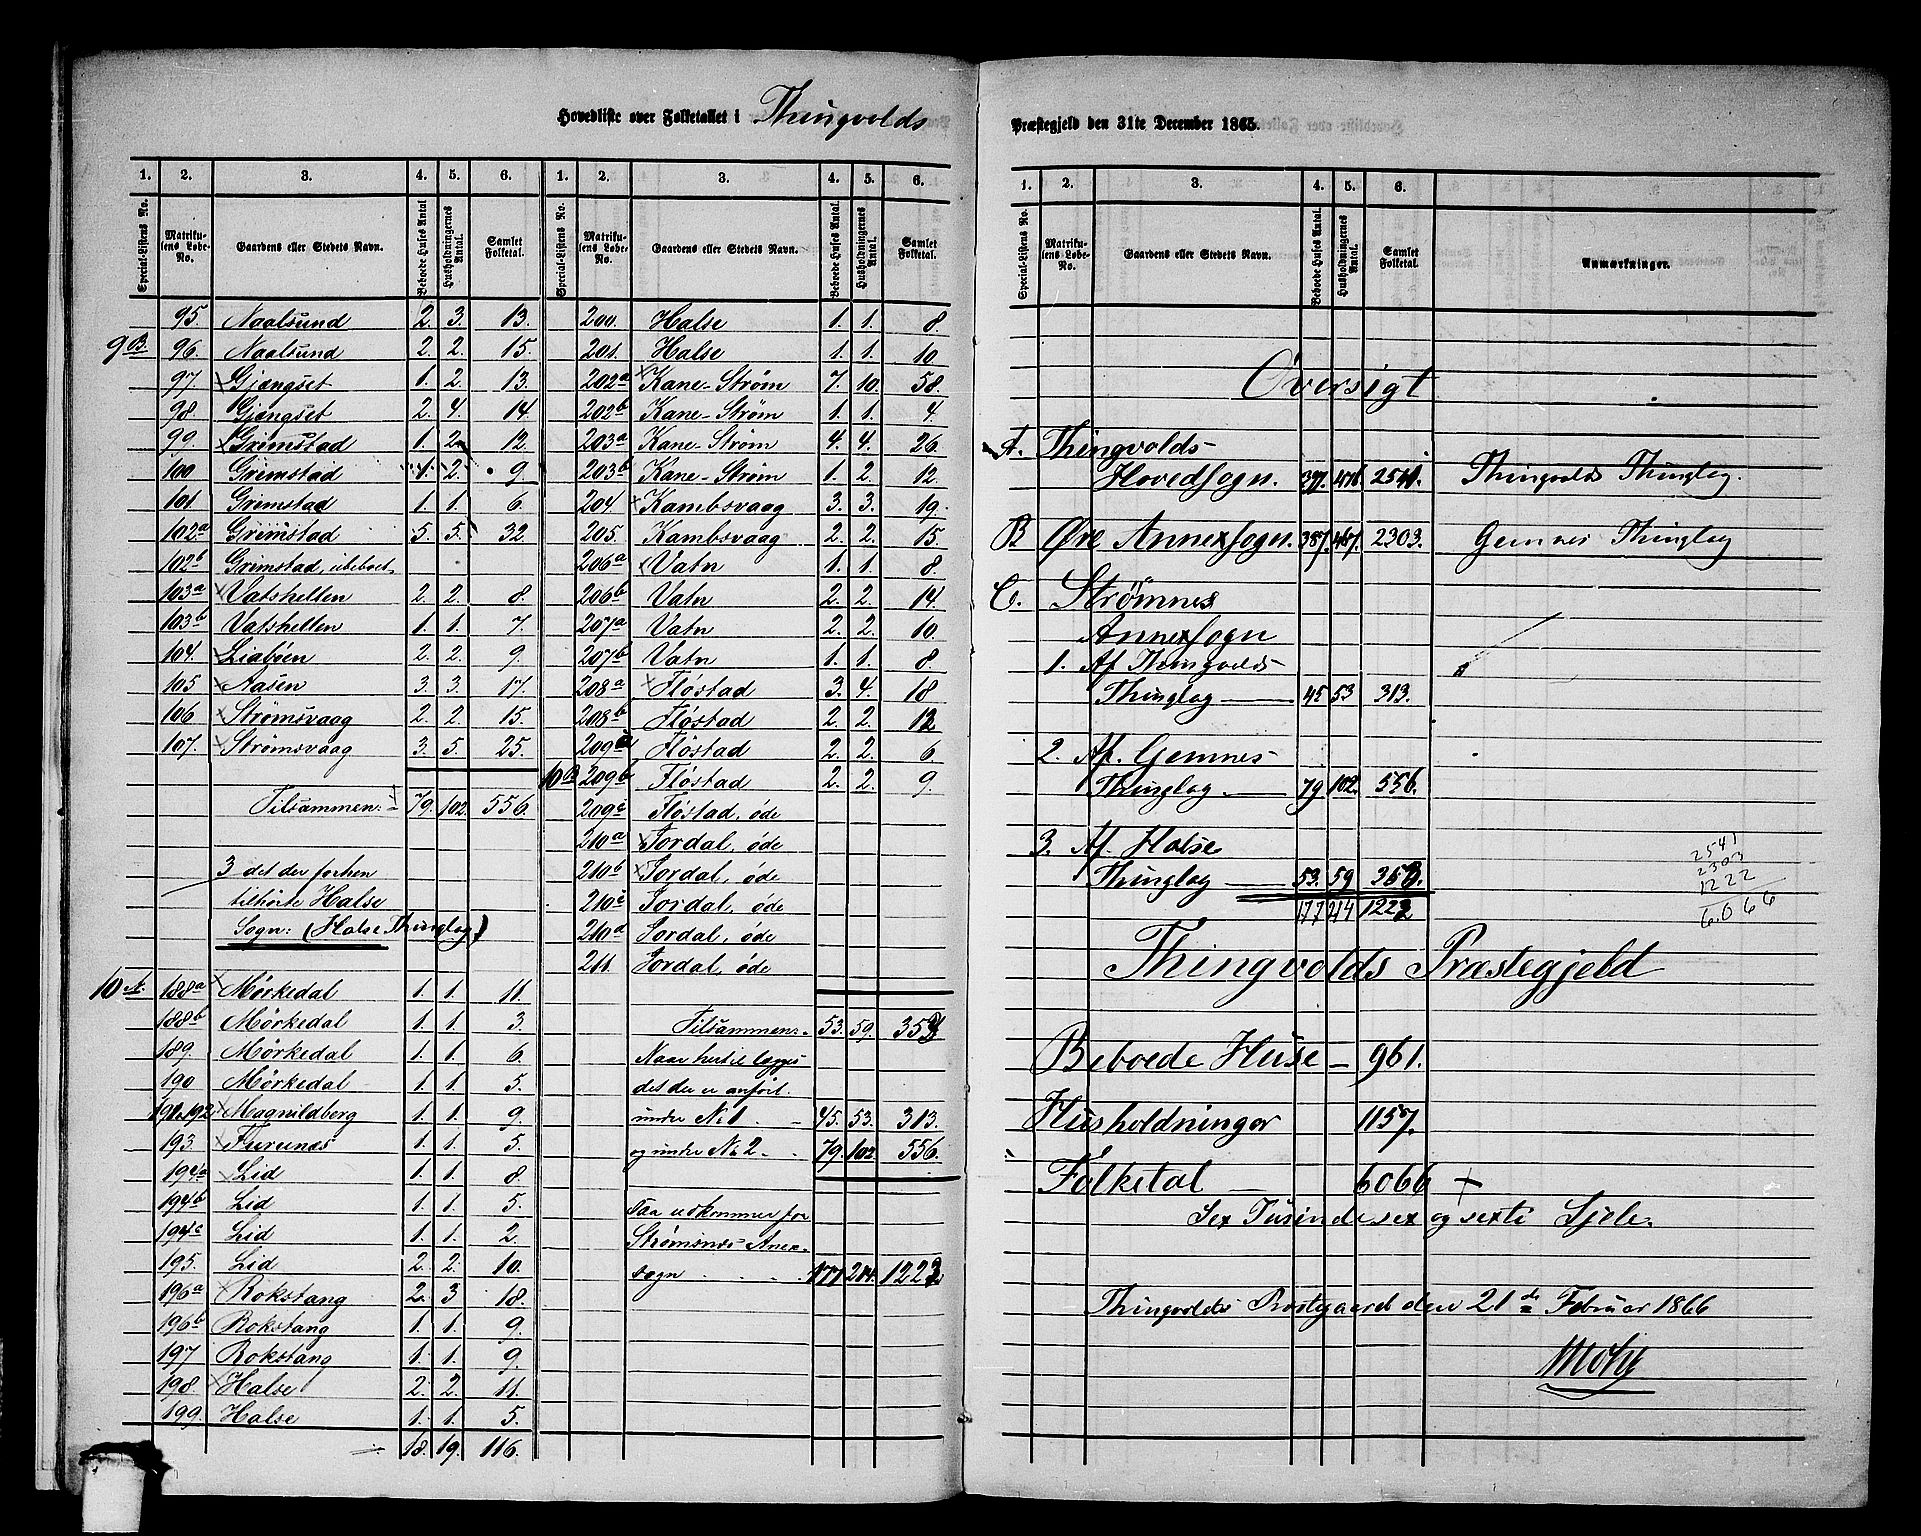 Hovedliste over Folketallet i Thingvolds
1. 2. 3. 4. 5. 6. 1. 2. 3. 4. 5. 6.
Special-Listens No. Matrikulens Løbe-No. Gaardens eller Stedets Navn. Beboede Huses Antal Husholdningernes Antal. Samlet Folketal. Special-Listens No. Matrikulens Løbe-No. Gaardens eller Stedets Navn. Beboede Huses Antal. Husholdningernes Antal. Samlet Folketal.
95. Naalsund 2. 3. 13.
9 B. 96. Naalsund 2. 2. 15.
97. Gjængset 1. 2. 13.
98. Gjængset 2. 4. 14.
99. Grimstad 1. 2. 12.
100 Grimstad 1. 2. 9.
101. Grimstad 1. 1. 6.
102a Grimstad 5. 5. 32.
102b Grimstad, ubeboet
103a Vatshellen 2. 2. 8.
103b Vatshellen 1. 1. 7.
104. Liabøen 2. 2. 9.
105 Aasen 3. 3. 17.
106 Strømsvaag 2. 2. 15.
107. Strømsvaag 3. 5. 25.
Tilsammen: 79. 102. 556.
3 det der forhen
tilhørte Halse
Sogn: (Halse Thinglag)
10 A. 188a Mørkedal 1. 1. 11.
188b Mørkedal 1. 1. 3.
189. Mørkedal 1. 1. 6.
190 Mørkedal 1. 1. 5.
191.192 Magnildberg 1. 1. 9.
193. Furunæs 1. 1. 5.
194a Lid 1. 1. 8.
194b Lid 1. 1. 5.
194c Lid 1. 1. 2.
195. Lid 2. 2. 10.
196a Rokstang 2. 3 18.
196b Rokstang 1. 1. 9.
197 Rokstang 1. 1. 9.
198. Halse 2. 2. 11.
199. Halse 1. 1. 5.
18. 19. 116.
200. Halse 1. 1. 8.
201. Halse 1. 1. 10
202a Kane-Strøm 7. 10. 58.
202b Kane-Strøm 1. 1. 4.
203a Kane-Strøm 4. 4. 26
203b Kane-Strøm 1. 2. 12.
204. Kambsvaag 3. 3. 19.
205. Kambsvaag 2. 2. 15.
206a Vatn 1. 1. 8.
206b Vatn 2. 2. 14.
207a Vatn 2. 2. 10.
207b Vatn 1. 1. 8.
208a Fløstad 3. 4. 18
208b Fløstad 2. 2. 12
209a Fløstad 2. 2. 6
10 B 209b Fløstad 2. 2. 9.
209c Fløstad, øde
210a Jordal, øde
210b Jordal, øde
210c Jordal, øde
210d Jordal, øde
211. Jordal, øde
Tilsammen: 53. 59. 353
Naar hertil lægges
det der er anført
under No 1 45. 53. 313.
og under No 2 79. 102. 556.
Saa udkommer for
Strømsnæs Anex-
sogn 177. 214. 1222
Præstegjeld den 31te December 1865.
1. 2. 3. 4. 5. 6.
Special-Listens No. Matrikulens Løbe-No. Gaardens eller Stedets Navn. Beboede Huses Antal. Husholdningernes Antal. Samlet Folketal. Anmærkninger.
Oversigt
A. Thingvolds
Hovedsogn. 397. 476. 2541. Thingvolds Thinglag.
B Øre Annexsogn. 387. 467. 2303. Gemnes Thinglag
C. Strømnes
Annexsogn
1. Af Thingvolds
Thinglag 45 53 313.
2. Af. Gemnes
Thinglag 79 102. 556.
3. Af. Halse
Thinglag 53. 59 353.
177 214 1222
2541
2303
1222
6.066
Thingvolds Præstegjeld
Beboede Huse – 961.
Husholdninger 1157.
Folketal – 6066 +
Sex Tusinde sex og sexti Sjele.
Thingvolds Præstegaard den 21de Februar 1866